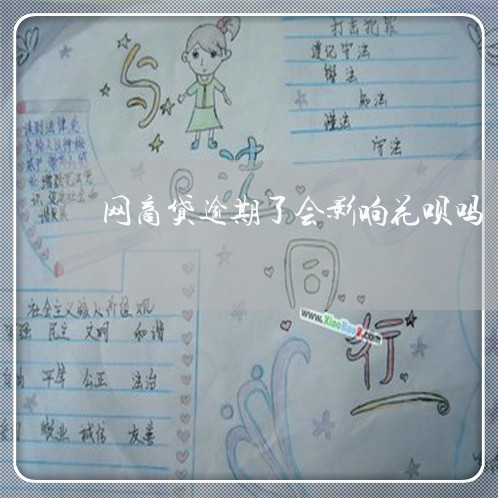 打击犯罪
遵纪守法
学法
知法
懂法
守法
与
法
同
行
网商贷逾期了会影响花呗吗
www.XiaoBao8.com
社会主义核心价值观
富强 民主 文明 和谐
平等 公正 法治
敬业 诚信 友善